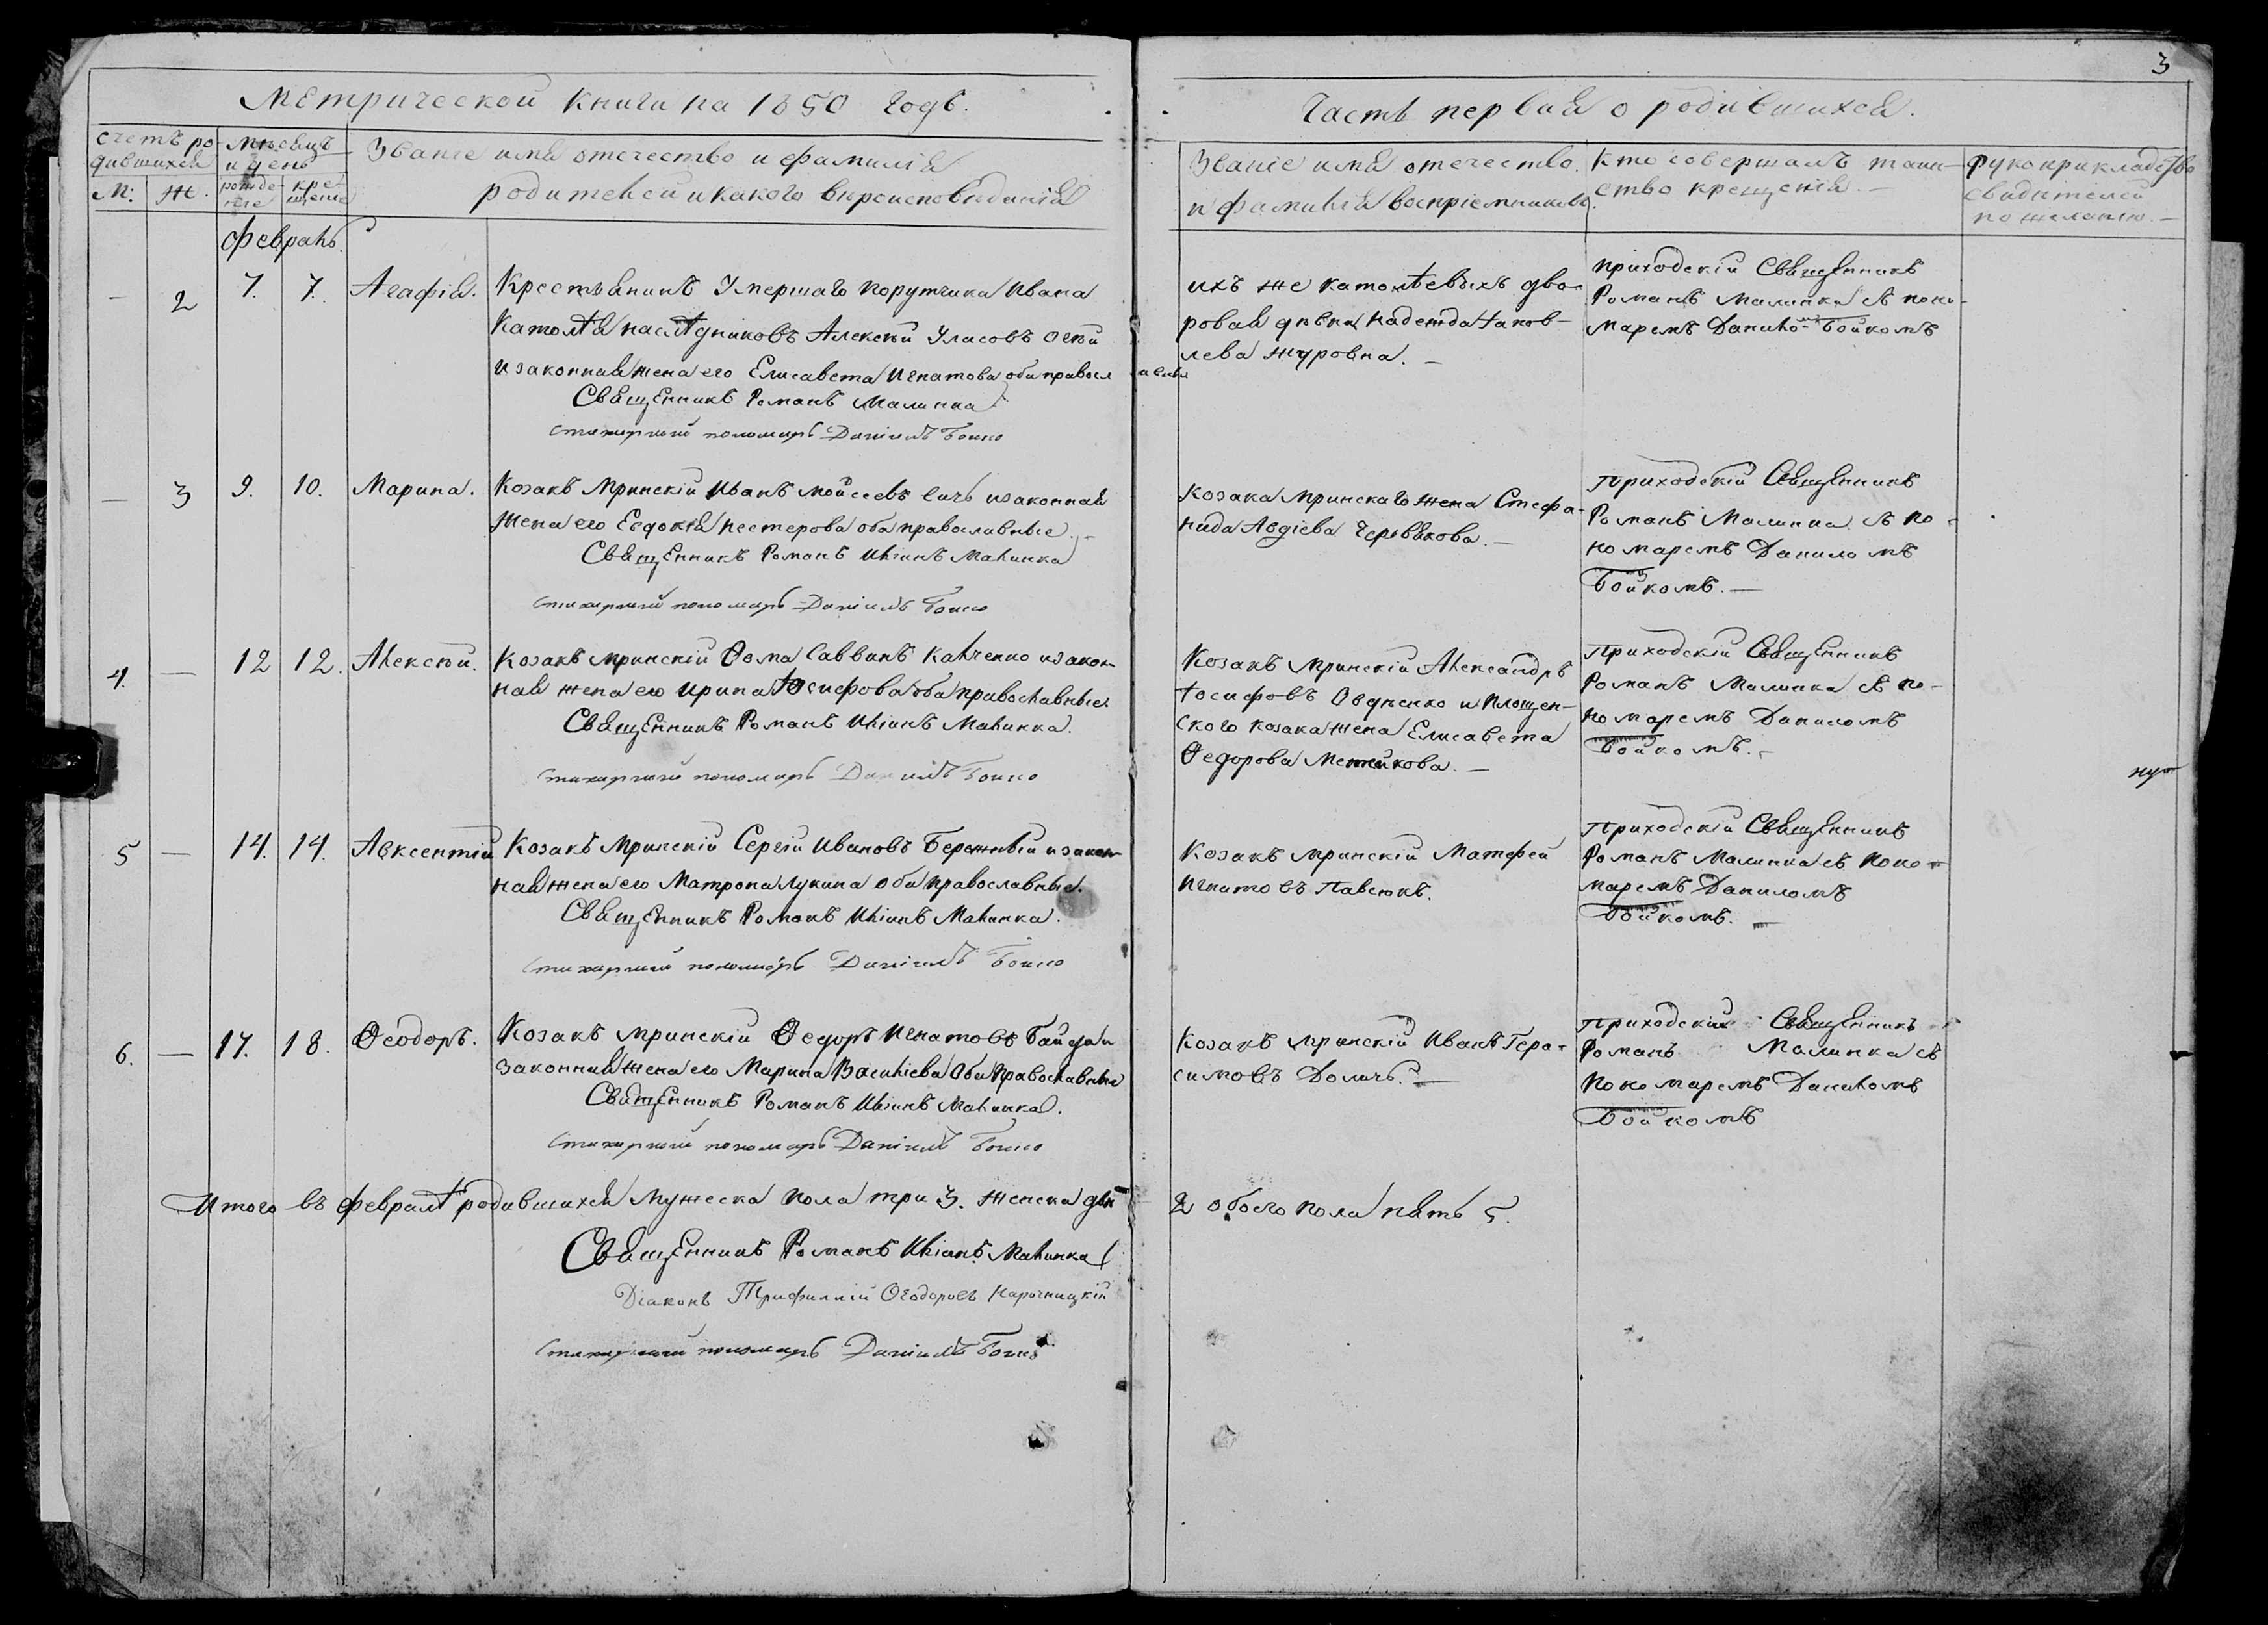 3
Метрической книги на 1850 годъ.
Часть первая о родившихся.
Счетъ ро-
дившихся
М: Ж.
Мѣсяцъ
и день
рожде-
ніе
кре-
щеніе
Званіе имя отечество и фамилія
родителей и какого вѣроисповѣданія
Званіе имя отечество
и фамилія воспріемниковъ.
Кто совершалъ таин-
ство крещенія. —
Рукоприкладство
свидѣтелей
по желанію. —
Февраль.
— 2 7. 7. Агафія.
Крестьянинъ Умершаго Порутчика Ивана
Католѣя наслѣдниковъ Алексѣй Уласовъ
и законная жена его Елисавета Игнатова оба православные
Священникъ Романъ Малинка
Стихарный пономарь Даніилъ Бойко
ихъ же Католѣевыхъ дво-
ровая дѣвка Надежда Іаков-
лева Журовна. —
Приходскій Священникъ
Романъ Малинка съ поно-
маремъ Данило- Бойкомъ
— 3 9. 10. Марина.
Козакъ Мринскій Иванъ Мойсеевъ Сичъ и законная
жена его Евдокія Нестерова оба православные. —
Священникъ Романъ Иліинъ Малинка
Стихарный пономарь Даніилъ Бойко
Козака Мринскаго жена Стефа-
нида Авдіева Червякова. —
Приходскій Священникъ
Романъ Малинка съ по-
номаремъ Даниломъ
Бойкомъ. —
4. — 12 12. Алексѣй.
Козакъ Мринскій Ѳома Саввинъ Калченко и закон-
ная жена его Ирина Іосифова оба православные.
Священникъ Романъ Иліинъ Малинка.
Стихарный пономарь Даніилъ Бойко
Козакъ Мринскій Александръ
Іосифовъ Овдѣенко и Площен-
ского козака жена Елисавета
Ѳедорова —
Приходскій Священникъ
Романъ Малинка съ по-
номаремъ Даниломъ
Бойкомъ. —
5 — 14. 14. Авксентій
Козакъ Мринскій Сергій Ивановъ Бережный и закон-
ная жена его Матрона Лукина оба православные.
Священникъ Романъ Иліинъ Малинка.
Стихарный пономарь Даніилъ Бойко
Козакъ Мринскій Матфей
Игнатовъ Павлюкъ.
Приходскій Священникъ
Романъ Малинка съ поно-
маремъ Даниломъ
Бойкомъ. —
6. — 17. 18. Ѳеодоръ.
Козакъ Мринскій Ѳедоръ Игнатовъ Байда и
законная жена его Марина Василіева Оба Православные
Священникъ Романъ Иліинъ Малинка.
Стихарный пономарь Даніилъ Бойко
Козакъ Мринскій Иванъ Гера-
симовъ Доличъ. —
Приходскій Священникъ
Романъ Малинка съ
Пономаремъ Даниломъ
Бойкомъ
Итого въ февралѣ родившихся Мужеска пола три 3. женска двѣ 2 обоего пола пять 5.
Священникъ Романъ Иліинъ Малинка
Діаконъ Трифиллій Ѳеодоровъ Нарочницкій
Стихарный пономарь Даніилъ Бойко